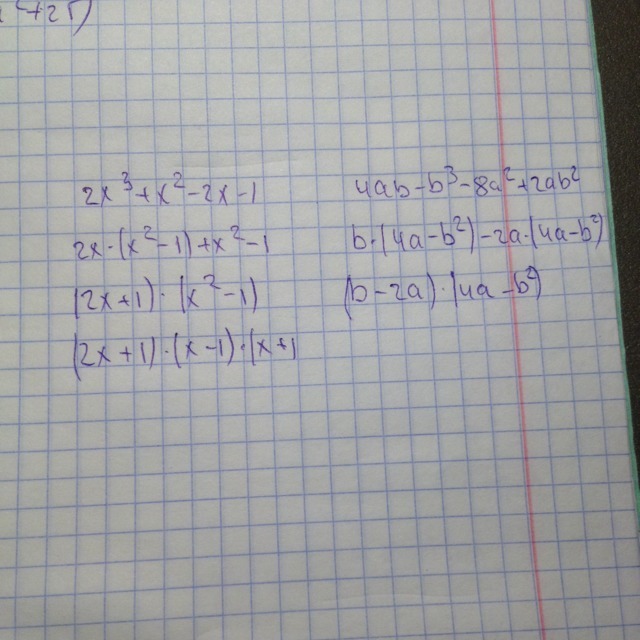 2x³+x²-2x-1
2x·(x²-1)+x²-1
(2x+1)·(x²-1)
(2x+1)·(x-1)·(x+1
4ab-b³-8a²+2ab²
b·(4a-b²)-2a·(4a-b²)
(b-2a)·(4a-b²)